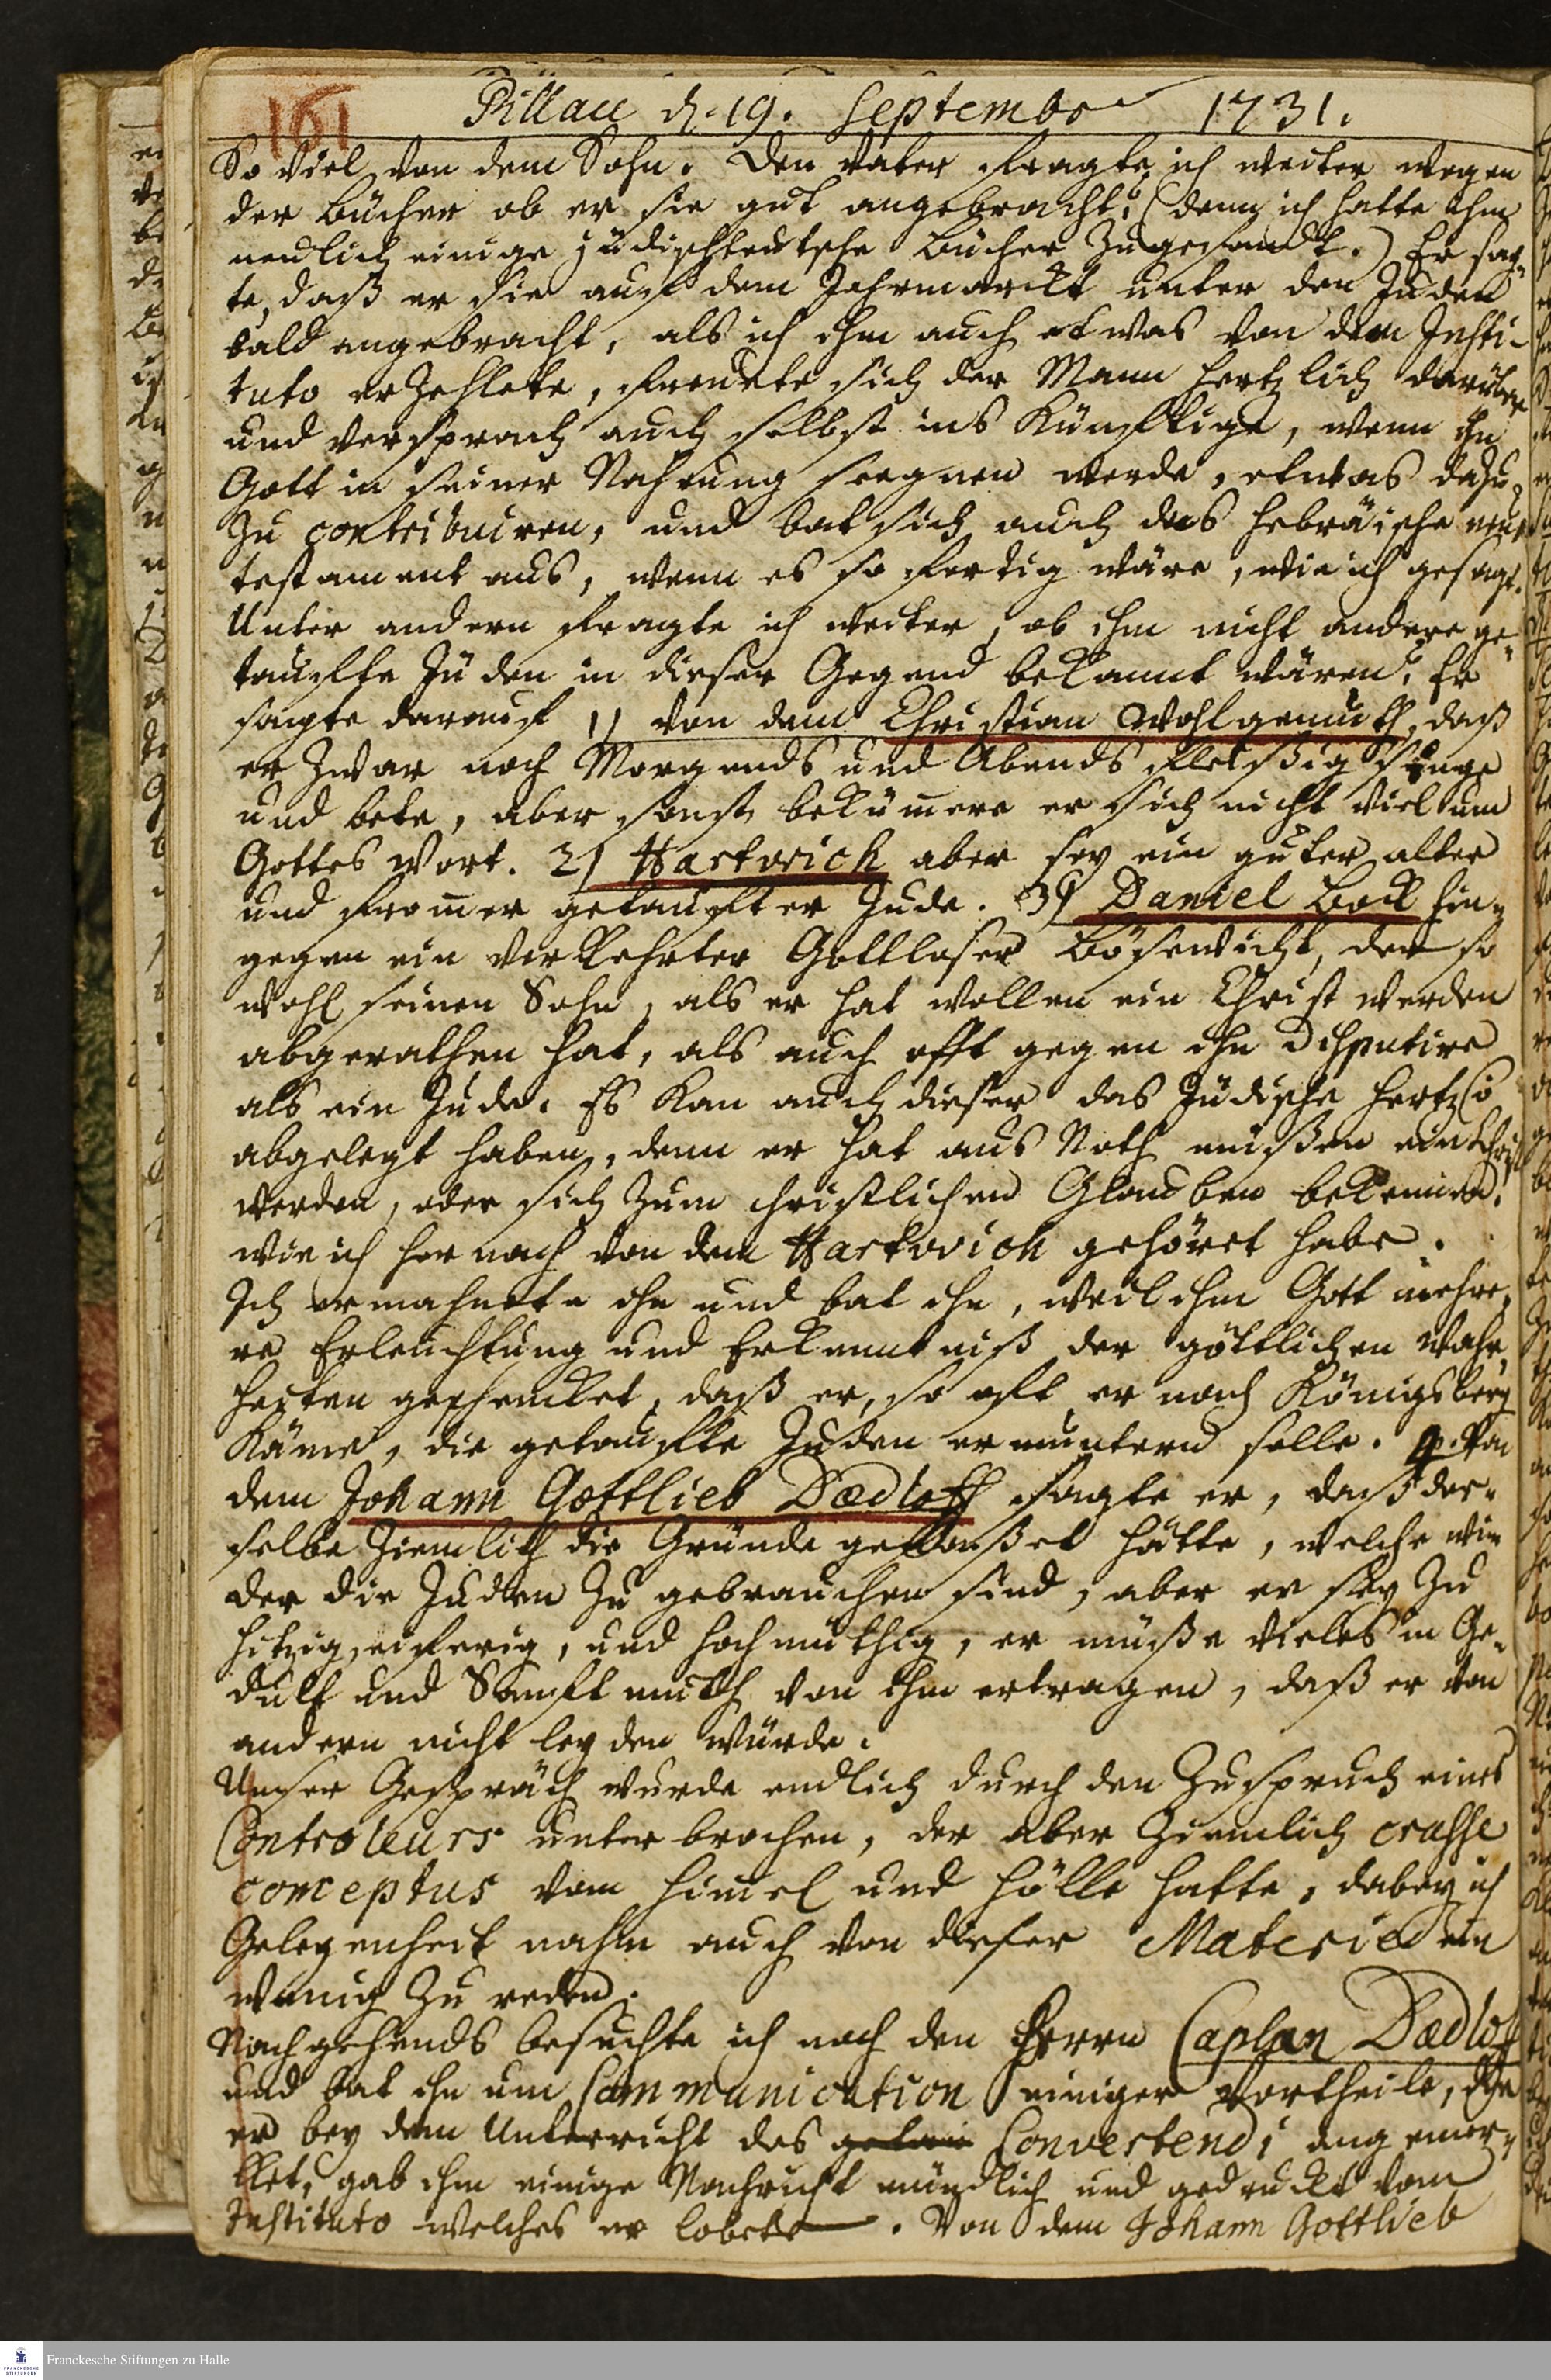 161
Pillau d. 19. Septembr 1731.
So viel von dem Sohn. Den Vater fragte ich weiter wegen
der Bücher ob er sie gut angebracht; (denn ich hatte ihm
neulich einige jüdischteutsche Bücher zugesandt.) Er sag-
te, daß er sie auf dem Jahrmarckt unter den Juden
bald angebracht, als ich ihm auch etwas von dem Insti-
tuto erzehlete, freuete sich der Mann hertzlich darüber
und versprach auch selbst ins Künfftige, wenn ihn
Gott in seiner Nahrung seegnen werde, etwas dazu
zu contribuiren, und bat sich auch das hebräische neue
testament aus, wenn es so fertig wäre, wie ich gesagt.
Unter andern fragte ich weiter, ob ihm nicht andere ge-
tauffte Jüden in dieser Gegend bekannt wären? Er
sagte darauf 1) von dem Christian Wohlgemuth, daß
er zwar noch Morgends und Abends fleißig singe
und bete, aber sonst bekümere er sich nicht viel um
Gottes Wort. 2) Hartwich aber sey ein guter alter
und fromer getauffter Jude. 3) Daniel Bock hin-
gegen ein verkehrter Gottloser Bösewicht, der so
wohl seinen Sohn, als er hat wollen ein Christ werden
abgerathen hat, als auch offt gegen ihn disputire
als ein Jude. Es kan auch dieser das Jüdische Hertz
abgelegt haben, denn er hat aus Noth müßen ein Christ
werden, oder sich zum christlichen Glauben bekennen.
wie ich hernach von dem Hartwich gehöret habe.
Ich ermahnete ihn und bat ihn, weil ihm Gott mehre-
re Erleuchtung und Erkenntniß der göttlichen Wahr-
heiten geschencket, daß er, so offt er nach Königsberg
käme, die getauffte Juden ermuntern solle. 4. Von
dem Johann Gottlieb Dædloff sagte er, daß der-
selbe ziemlich die Gründe gefaßet hätte, welche wie
der die Juden zu gebrauchen sind, aber er sey zu
hitzig, eiferig, und hochmüthig, er müße vieles in Ge-
dult und Sanfftmuth von ihm ertragen, daß er von
andern nicht leyden würde.
Unser Gespräch wurde endlich durch den Zuspruch eines
Controleurs unterbrochen, der aber ziemlich crasse
conceptus vom Himel und Hölle hatte, dabey ich
Gelegenheit nahm auch von dieser Materie ein
wenig zu reden.
Nachgehends besuchte ich noch den Herrn Caplan Dædloff
und bat ihn um Communication einiger Vortheile, die
er bey dem Unterricht des Convertendi angemer-
cket, gab ihm einige Nachricht mündlich und gedruckt vom
Instituto welches er lobete. Von dem Johann Gottlieb
Franckesche Stiftungen zu Halle